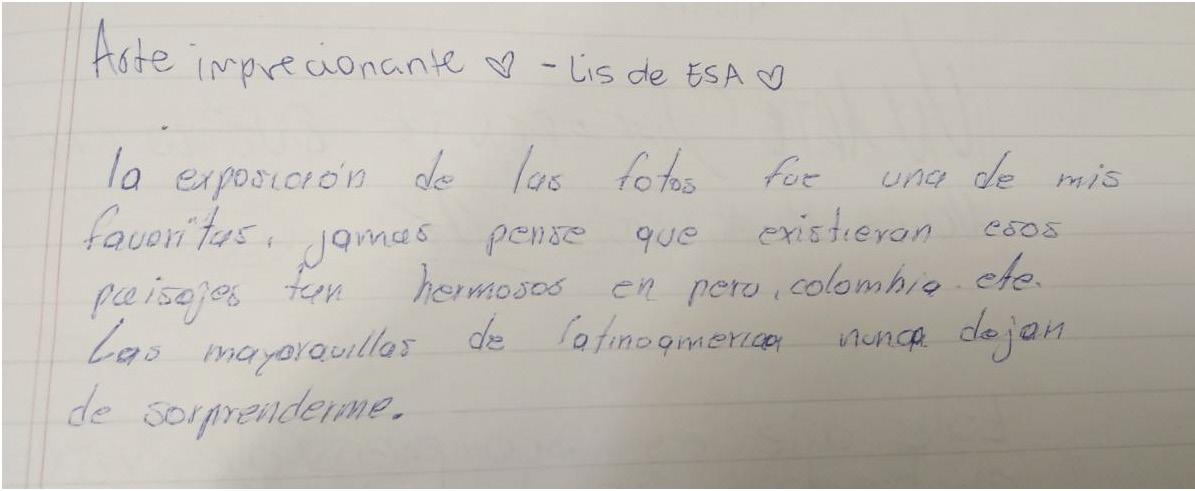 Arte imprecionante ♡ - Lis de ESA ♡
la exposición de las fotos fue una de mis
favoritas, jamas pense que existieran esos
paisajes tan hermosos en peru, colombia. etc.
Las mayoravillas de latinoamerica nunca dejan
de sorprenderme.